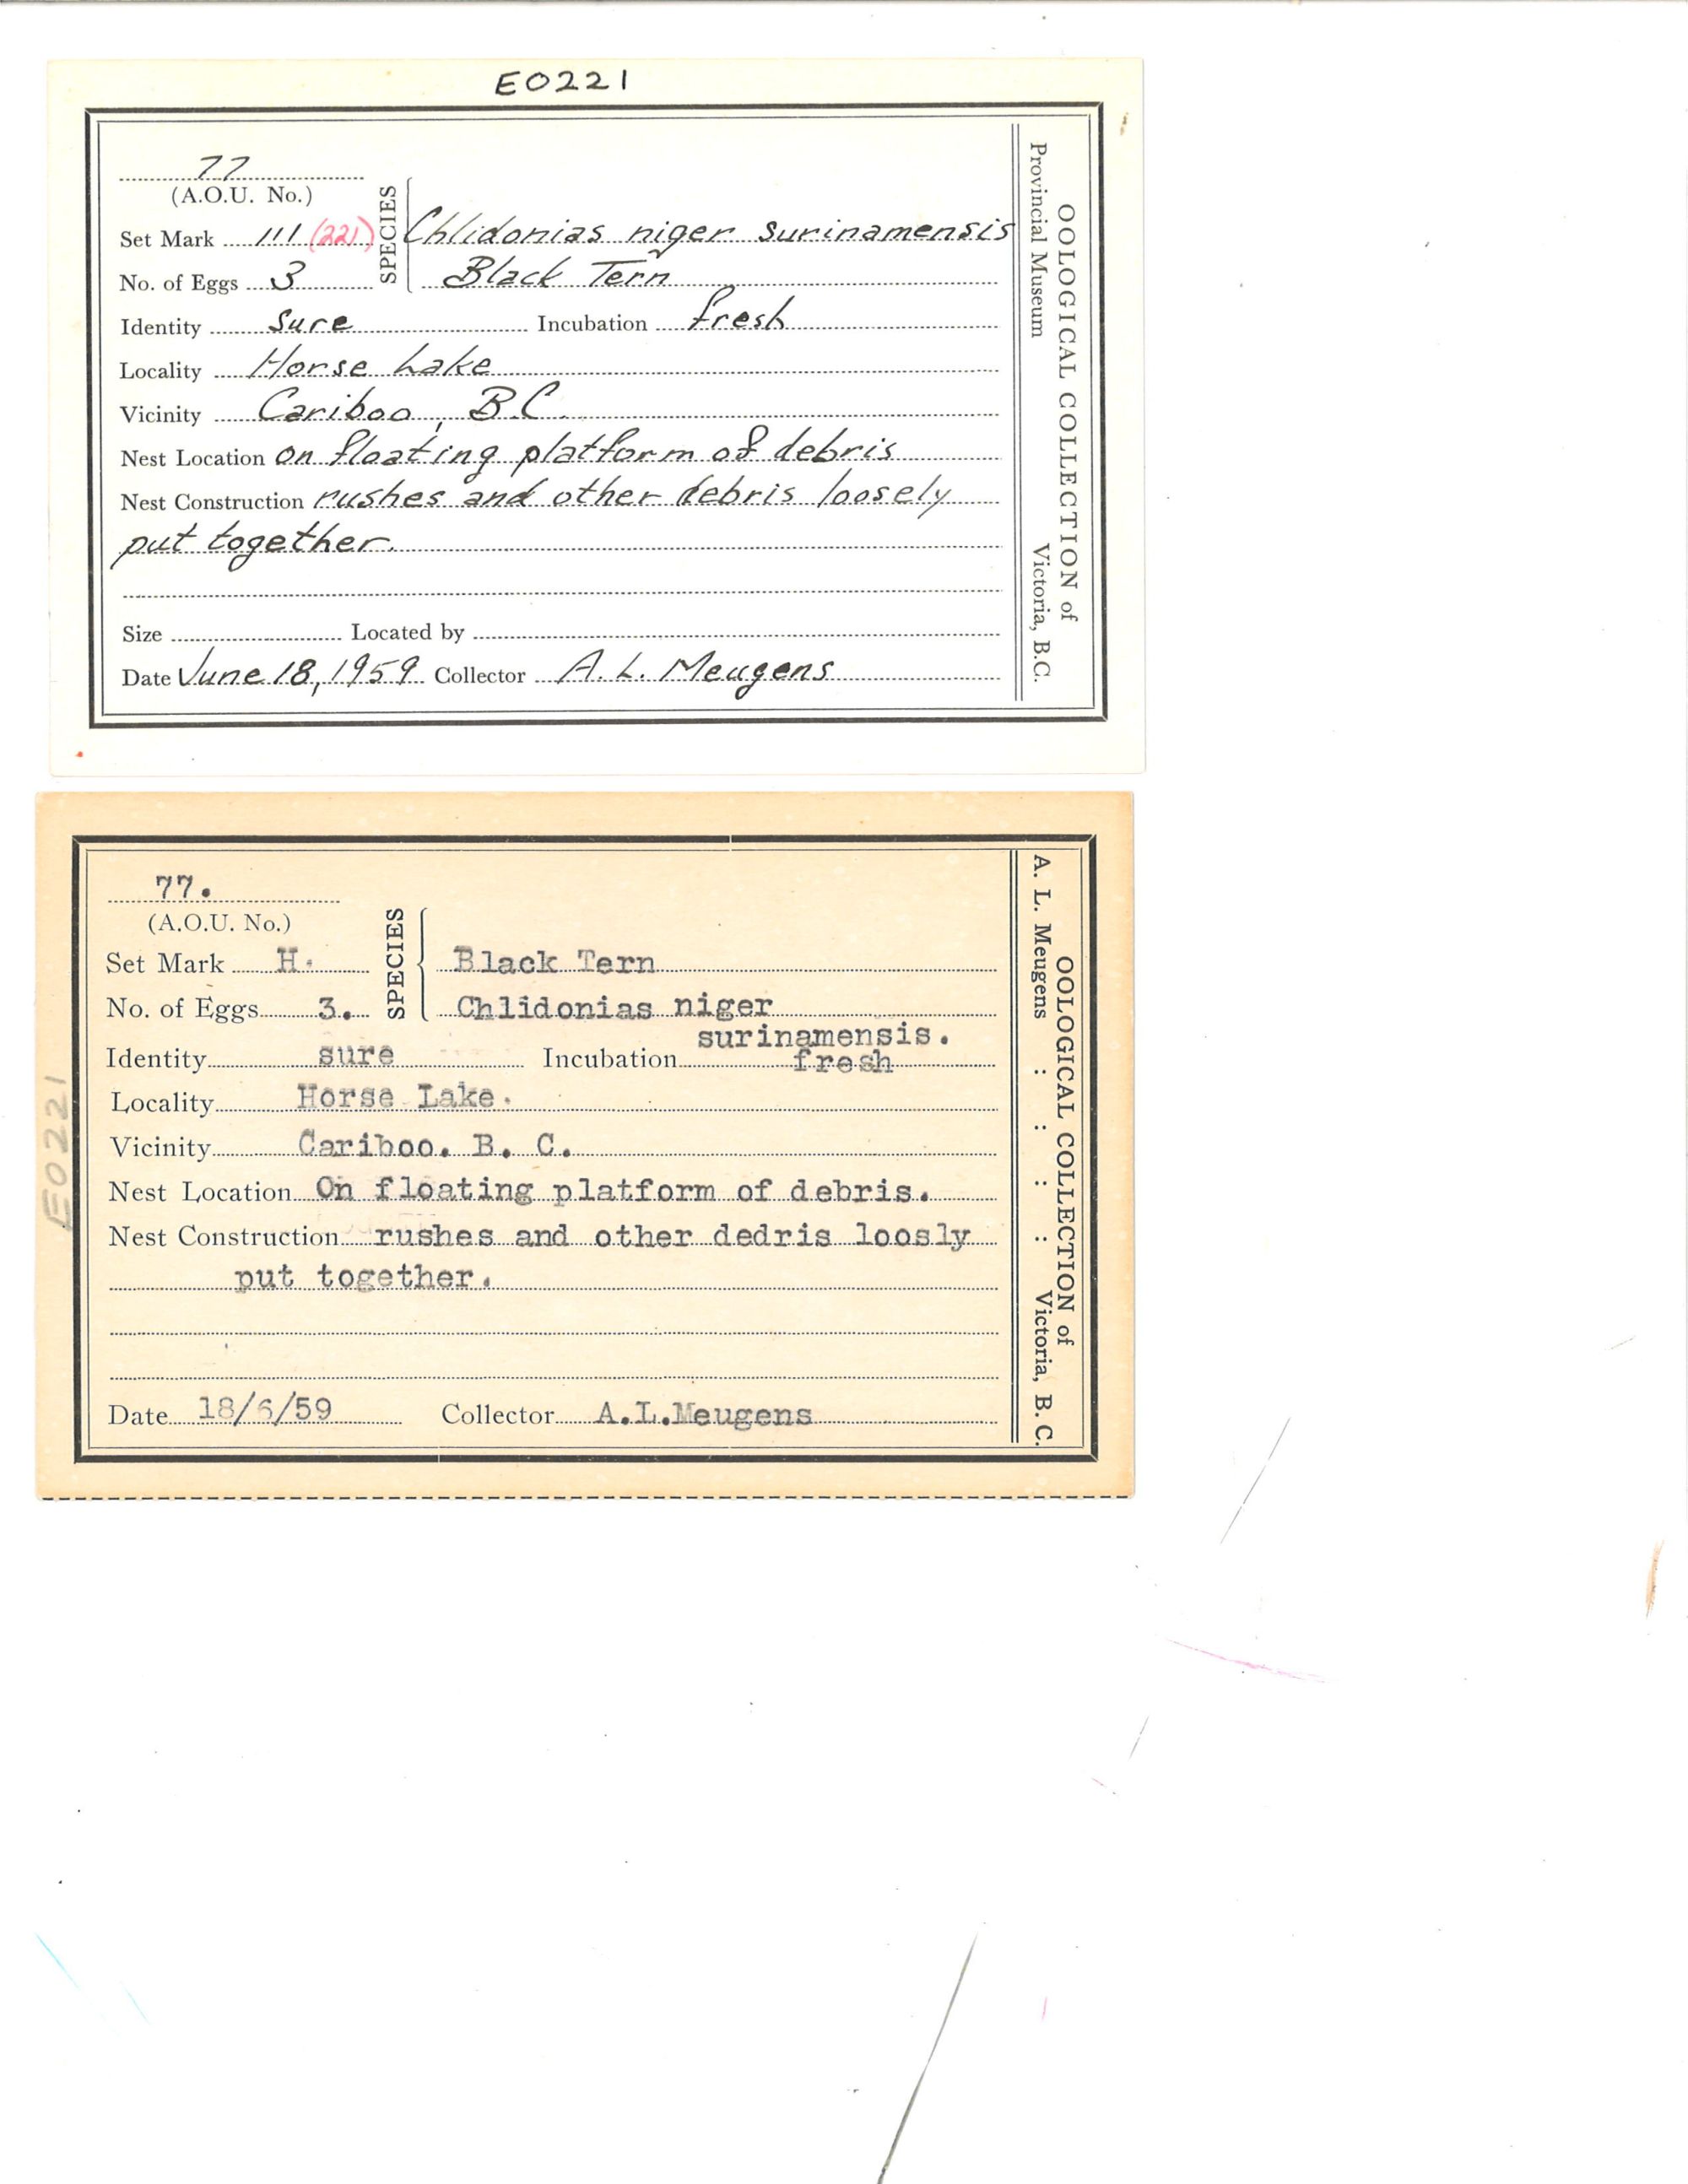 E0221
77
(A.O.U. No.)
Set Mark 111 (221)
SPECIES
Chlidonias niger surinamensis
No. of Eggs 3
Black Tern
Identity Sure Incubation fresh
Locality Horse Lake
Vicinity Cariboo, B.C.
Nest Location on floating platform of debris
Nest Construction rushes and other debris loosely
put together.
Size Located by
Date June 18, 1959 Collector A. L. Meugens
OOLOGICAL COLLECTION of
Provincial Museum Victoria, B.C.
E0221
77.
(A.O.U. No.)
Set Mark H.
SPECIES
Black Tern
No. of Eggs 3.
Chlidonias niger
surinamensis.
Identity sure Incubation fresh
Locality Horse Lake.
Vicinity Cariboo. B. C.
Nest Location On floating platform of debris.
Nest Construction rushes and other dedris loosly
put together.
Date 18/6/59 Collector A.L.Meugens
OOLOGICAL COLLECTION of
A. L. Meugens : : : : Victoria, B. C.